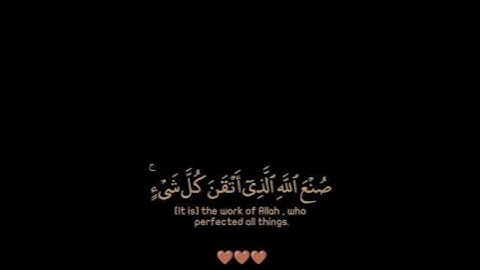 صُنْعَ ٱللَّهِ ٱلَّذِىٓ أَتْقَنَ كُلَّ شَىْءٍ ۚ
[It is] the work of Allah , who
perfected all things.